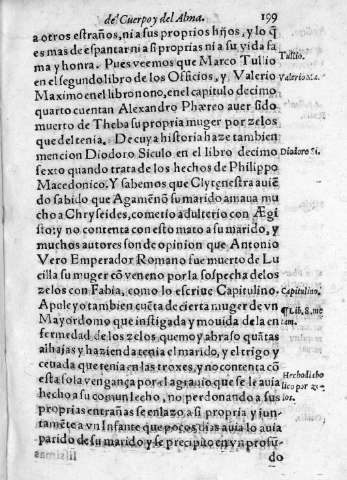 de Cuerpo y del Alma. 199
a otros estraños, ni a sus proprios hijos, y lo q̃
es mas de espantar ni a si proprias ni a su vida fa
ma y honra. Pues veemos que Marco Tullio
Tullio.
en el segundo libro de los Officios, y Valerio
Valerio Ma.
Maximo en el libro nono, en el capitulo decimo
quarto cuentan Alexandro Phæreo auer sido
muerto de Theba su propria muger por zelos
que del tenia. De cuya historia haze tambien
mencion Diodoro Siculo en el libro decimo
Diodoro Si.
sexto quando trata de los hechos de Philippo
Macedonico. Y sabemos que Clytenestra auiẽ
do sabido que Agamẽnõ su marido amaua mu
cho a Chryseides, cometio adulterio con Ægi
sto: y no contenta con esto mato a su marido, y
muchos autores son de opinion que Antonio
Vero Emperador Romano fue muerto de Lu
cilla su muger cõ veneno por la sospecha de los
zelos con Fabia, como lo escriue Capitulino.
Capitulino.
Apuleyo tambien cuẽta de cierta muger de vn
¶Lib, 8, me
Mayordomo que instigada y mouida de la en
tam.
fermedad de los zelos, quemo y abraso quãtas
alhajas y hazienda tenia el marido, y el trigo y
ceuada que tenia en las troxes, y no contenta cõ
esta sola vengança por el agrauio que se le auia
Hecho diabo
lico por ze-
hecho a su comun lecho, no perdonando a sus
los.
proprias entrañas se enlazo a si propria y jun-
tamẽte a vn Infante que pocos dias auia lo auia
parido de su marido y se precipito en vn profũ-
do